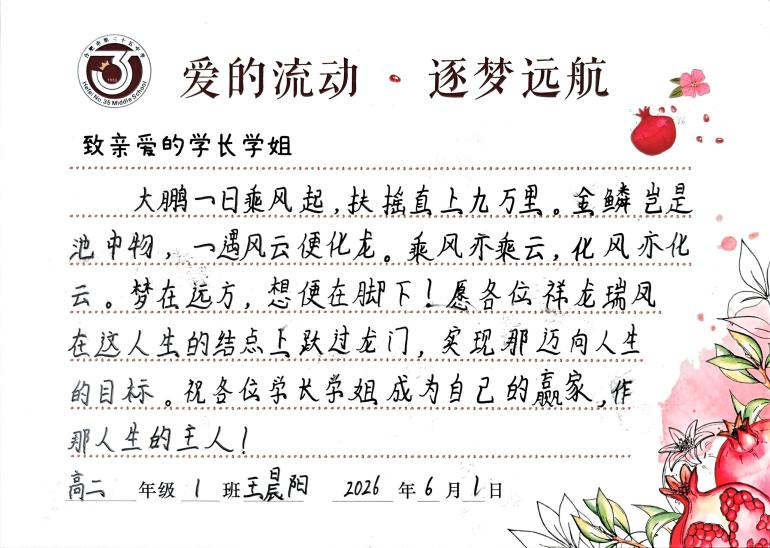 合肥市第三十五中学
1956
Hefei No.35 Middle School
爱的流动·逐梦远航
致亲爱的学长学姐
大鹏一日乘风起，扶摇直上九万里。金鳞岂是
池中物，一遇风云便化龙。乘风亦乘云，化风亦化
云。梦在远方，想便在脚下！愿各位祥龙瑞凤
在这人生的结点上跃过龙门，实现那迈向人生
的目标。祝各位学长学姐成为自己的赢家，作
那人生的主人！
高二 年级 1 班 王晨阳 2026 年 6 月 1 日